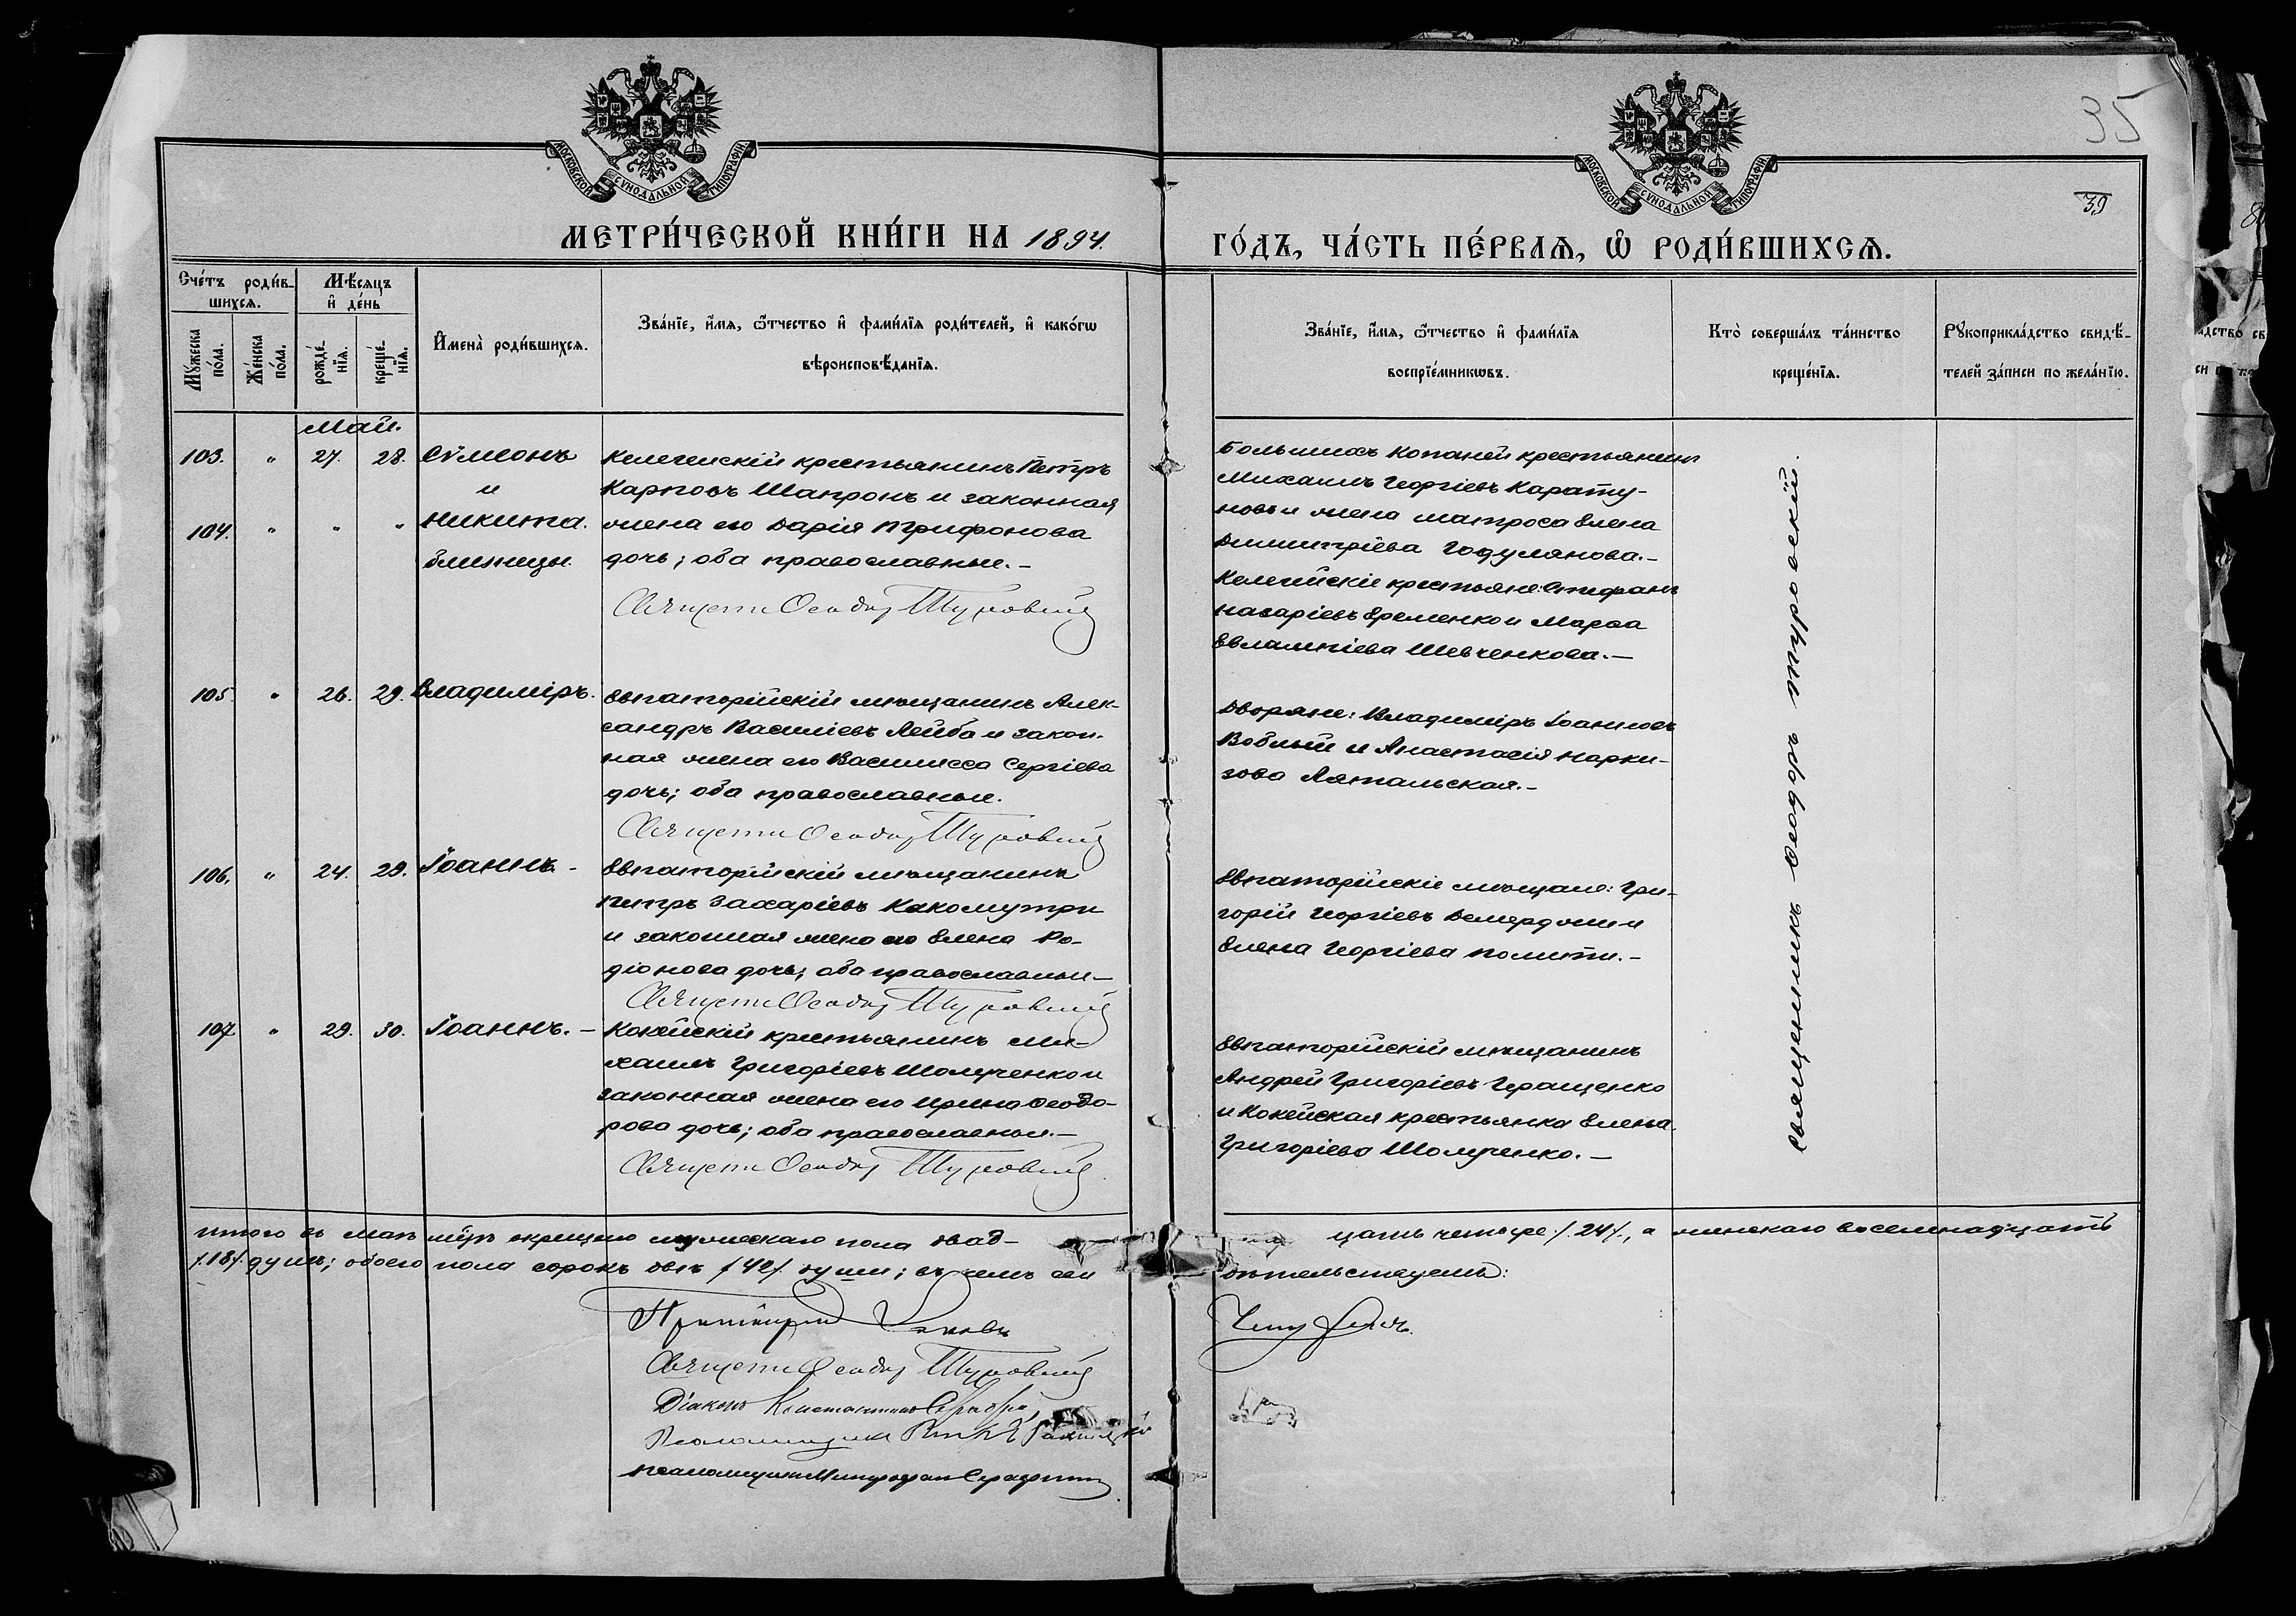 35
39
МОСКОВСКОЙ СѴНОДАЛЬНОЙ ТИПОГРАФІИ
МОСКОВСКОЙ СѴНОДАЛЬНОЙ ТИПОГРАФІИ
МЕТРИ́ЧЕСКОЙ КНИ́ГИ НА 1894. ГО́ДЪ, ЧА́СТЬ ПЕ́РВАѦ, Ѽ РОДИ́ВШИХСѦ.
Сче́тъ роди́в-
шихсѧ.
Мꙋ́жеска по́ла.
Же́нска по́ла.
Мѣ́сѧцъ
и҆ де́нь
рожде́-нїѧ.
креще́-нїѧ.
И҆мена̀ роди́вшихсѧ.
Зва́нїе, и҆́мѧ, ѻ҆́тчество и҆ фами́лїѧ роди́телей, и҆ како́гѡ
вѣроисповѣ́данїѧ.
Зва́нїе, и҆́мѧ, ѻ҆́тчество и҆ фами́лїѧ
воспрїе́мникѡвъ.
Кто̀ соверша́лъ та́инство
креще́нїѧ.
Рꙋкоприкла́дство свидѣ́-
телей за́писи по жела́нїю.
Май.
103. " 27. 28. Сѵмеонъ
и
104. " " " Никита.
близнецы.
Келегейскій крестьянинъ Петръ
Карповъ Шапронъ и законная
жена его Дарія Трифонова
дочь; оба православные.-
Священ Ѳеодоръ Туровскій
Большихъ Копаней крестьянинъ
Михаилъ Георгіевъ Карату-
новъ и жена матроса Елена
Димитріева Годулянова.-
Келегейскіе крестьяне: Стефанъ
Назаріевъ Еременко и Марѳа
Евлампіева Шевченкова.-
105. " 26. 29. Владиміръ.
Евпаторійскій мѣщанинъ Алек-
сандръ Василіевъ Лейба и закон-
ная жена его Василисса Сергіева
дочь; оба православные.
Священ Ѳеодоръ Туровскій
Дворяне: Владиміръ Іоанновъ
Воблый и Анастасія Нарки-
зова Лятальская.-
106. " 24. 29. Іоаннъ.-
Евпаторійскій мѣщанинъ
Петръ Захаріевъ Какомутри
и законная жена его Елена Ро-
діонова дочь; оба православные-
Священ Ѳеодоръ Туровскій
Евпаторійскіе мѣщане: Гри-
горій Георгіевъ Демерджи и
Елена Георгіева Полити.-
107 " 29. 30. Іоаннъ.-
Кокейскій крестьянинъ Ми-
хаилъ Григоріевъ Шолученко и
законная жена его Ирина Ѳеодо-
рова дочь; оба православные.-
Священ Ѳеодоръ Туровскій
Евпаторійскій мѣщанинъ
Андрей Григоріевъ Геращенко
и Кокейская крестьянка Елена
Григоріева Шолученко.-
Священникъ Ѳеодоръ Туровскій.
Итого въ маѣ мцѣ окрещено мужескаго пола двад- цать четыре /.24/., а женскаго восемнадцать
/.18/. душъ; обоего пола сорокъ двѣ /.42/. души; въ чемъ сви дѣтельствуемъ:
Протоіерей Іаковъ Чепуринъ.
Священ Ѳеодоръ Туровскій
Діаконъ Константинъ
Псаломщикъ
Псаломщикъ Митрофанъ